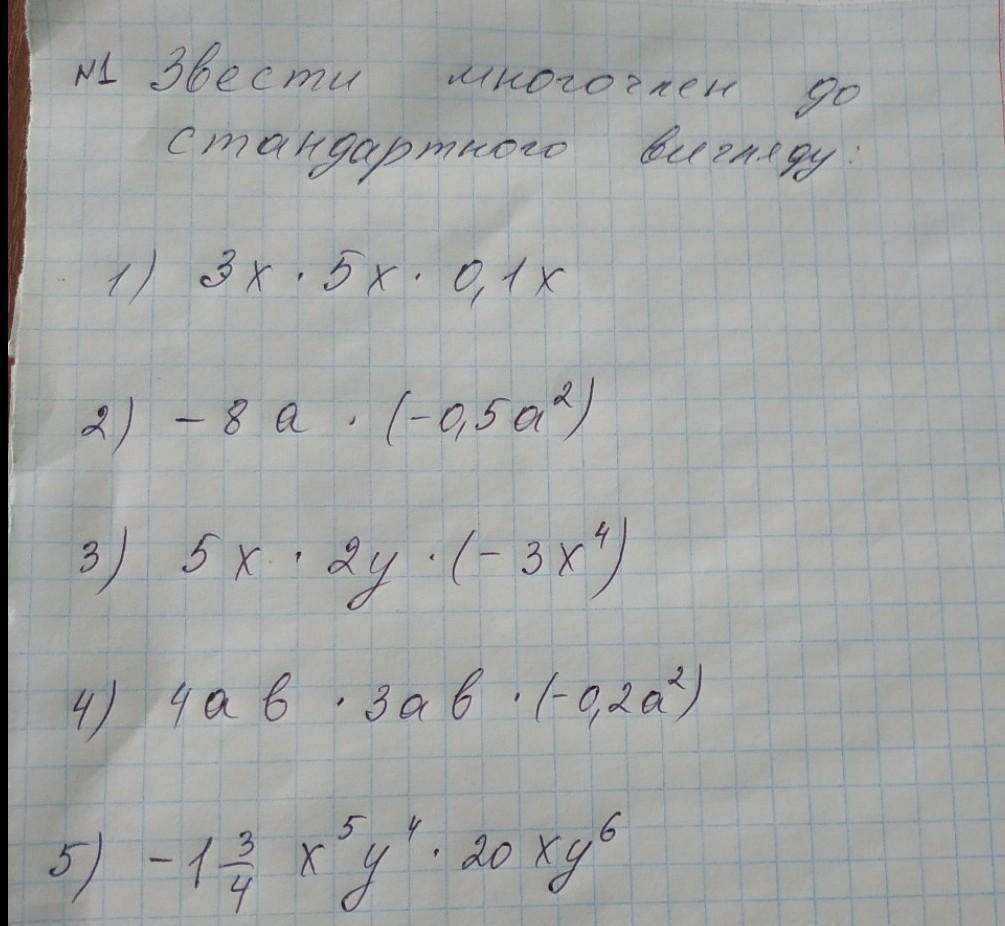 №1 Звести многочлен до
стандартного вигляду:
1) 3x · 5x · 0,1x
2) -8a · (-0,5a²)
3) 5x · 2y · (-3x⁴)
4) 4ab · 3ab · (-0,2a²)
5) -1 3/4 x⁵y⁴ · 20xy⁶